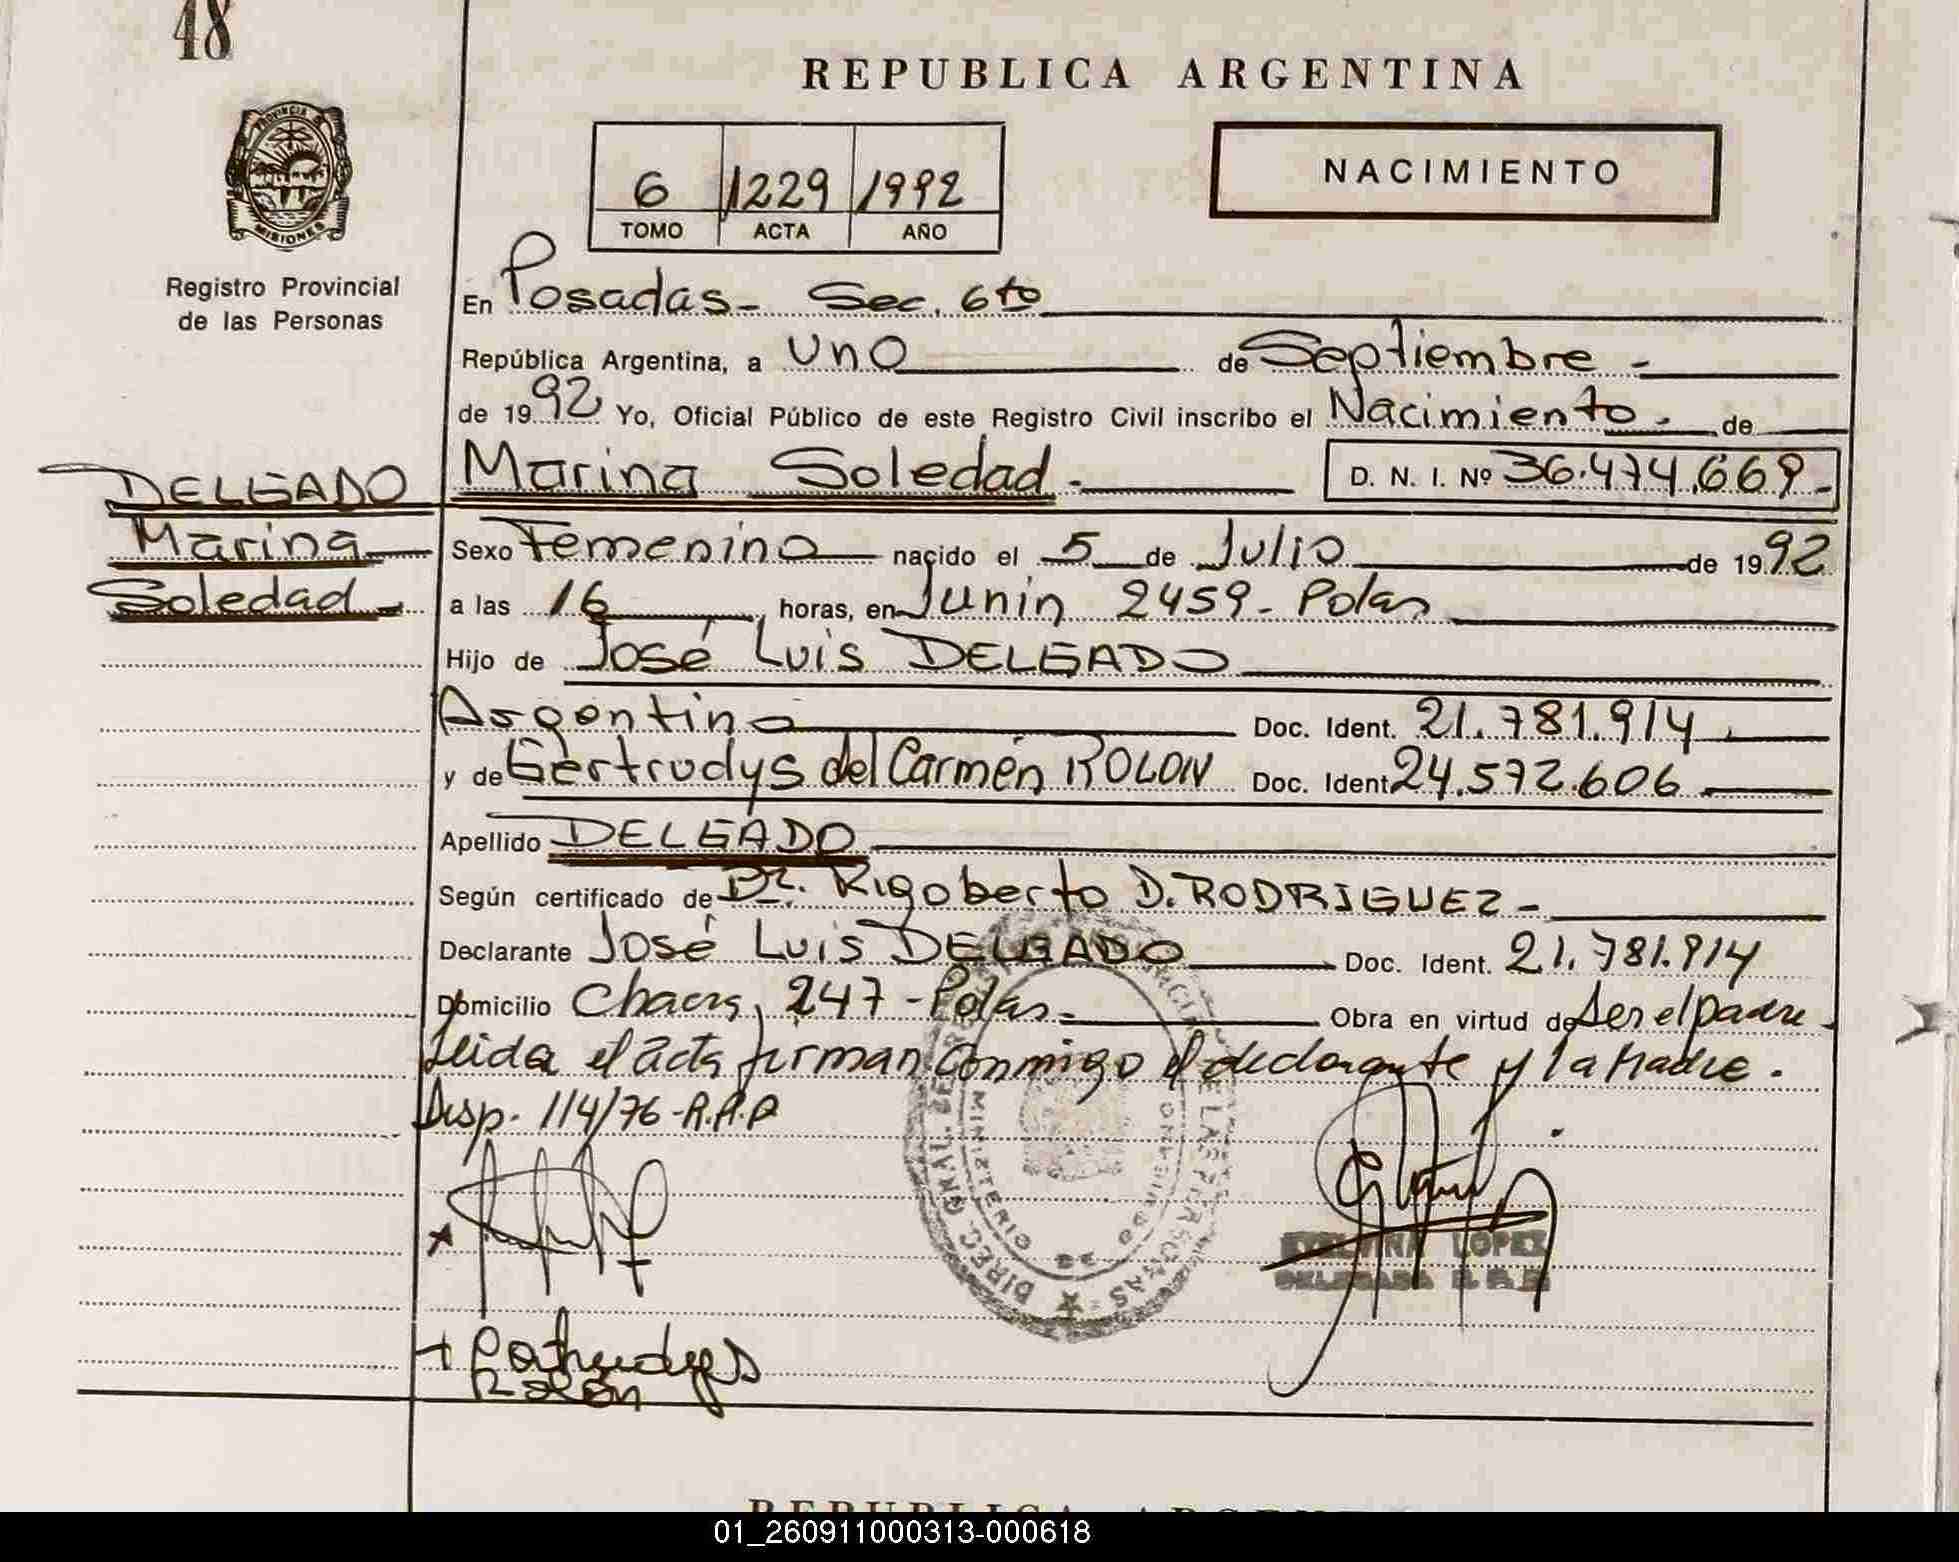 48
REPUBLICA ARGENTINA
PROVINCIA DE
MISIONES
Registro Provincial
de las Personas
6 1229 1992
TOMO ACTA AÑO
NACIMIENTO
En Posadas - Sec. 6to
República Argentina, a uno de Septiembre -
de 1992 Yo, Oficial Público de este Registro Civil inscribo el Nacimiento - de
DELGADO
Marina
Soledad -
Marina Soledad - D. N. I. Nº 36.474.669 -
Sexo Femenino nacido el 5 de Julio de 1992
a las 16 horas, en Junin 2459 - Pdas
Hijo de José Luis DELGADO
Argentino Doc. Ident. 21.781.914 -
y de Gertrudys del Carmen ROLON Doc. Ident. 24.572.606
Apellido DELGADO
Según certificado de Dr. Rigoberto D. RODRIGUEZ -
Declarante José Luis DELGADO Doc. Ident. 21.781.914
Domicilio 247 - Pdas - Obra en virtud de ser el padre -
Leida el acta firman conmigo el declarante y la Madre.
Disp. 114/76 -
DIREC. GRAL. DE LAS PERSONAS
MINISTERIO DE GOBIERNO
LOPEZ
DELEGADA
+
Rolón
REPUBLICA ARGENTINA
01_260911000313-000618